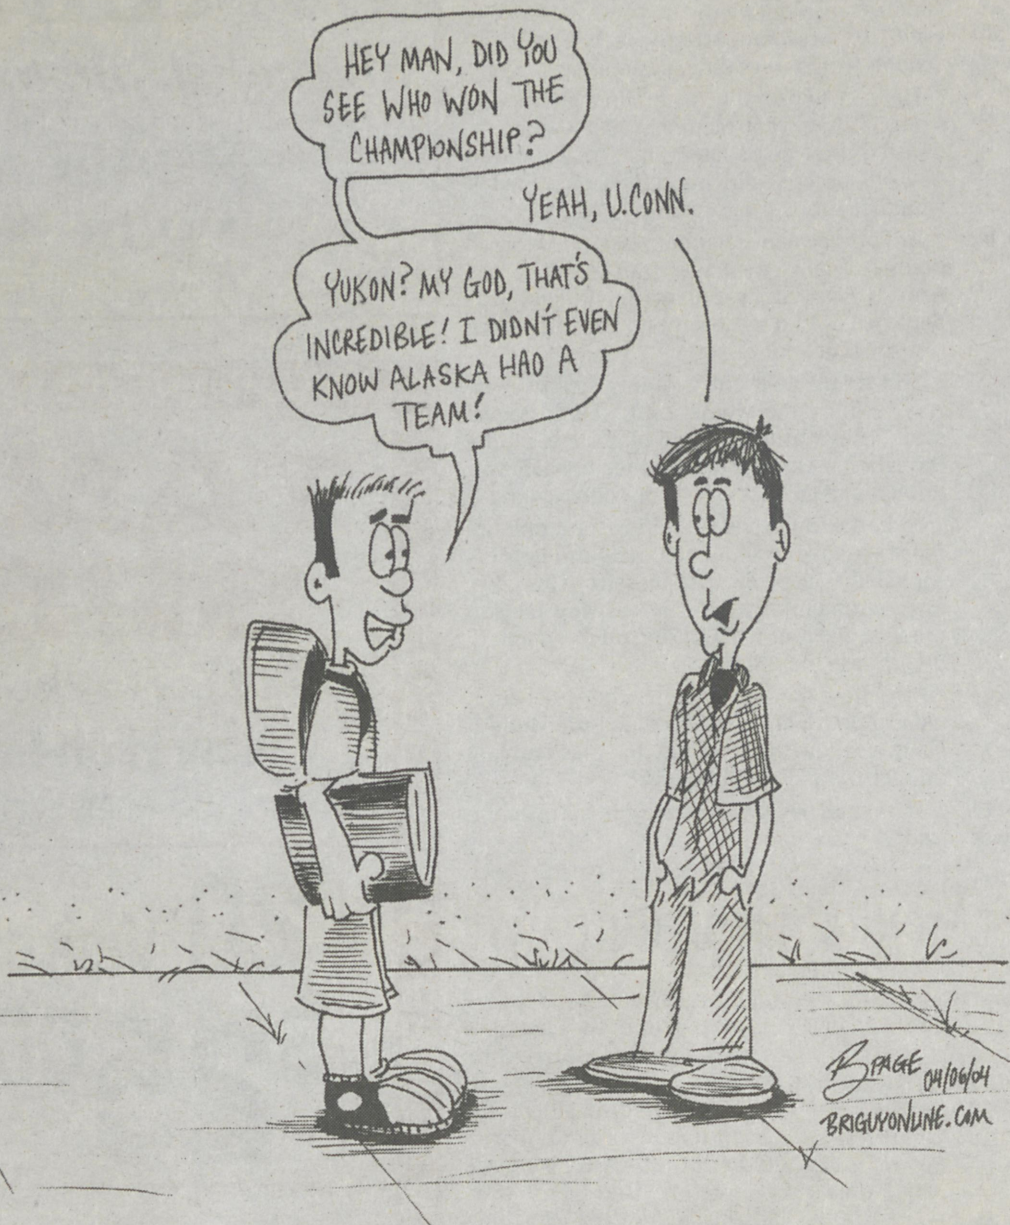 HEY MAN, DID YOU
SEE WHO WON THE
CHAMPIONSHIP?
YEAH, U.CONN.
YUKON? MY GOD, THAT'S
INCREDIBLE! I DIDN'T EVEN
KNOW ALASKA HAD A
TEAM!
B PAGE 04/06/04
BRIGUYONLINE.COM